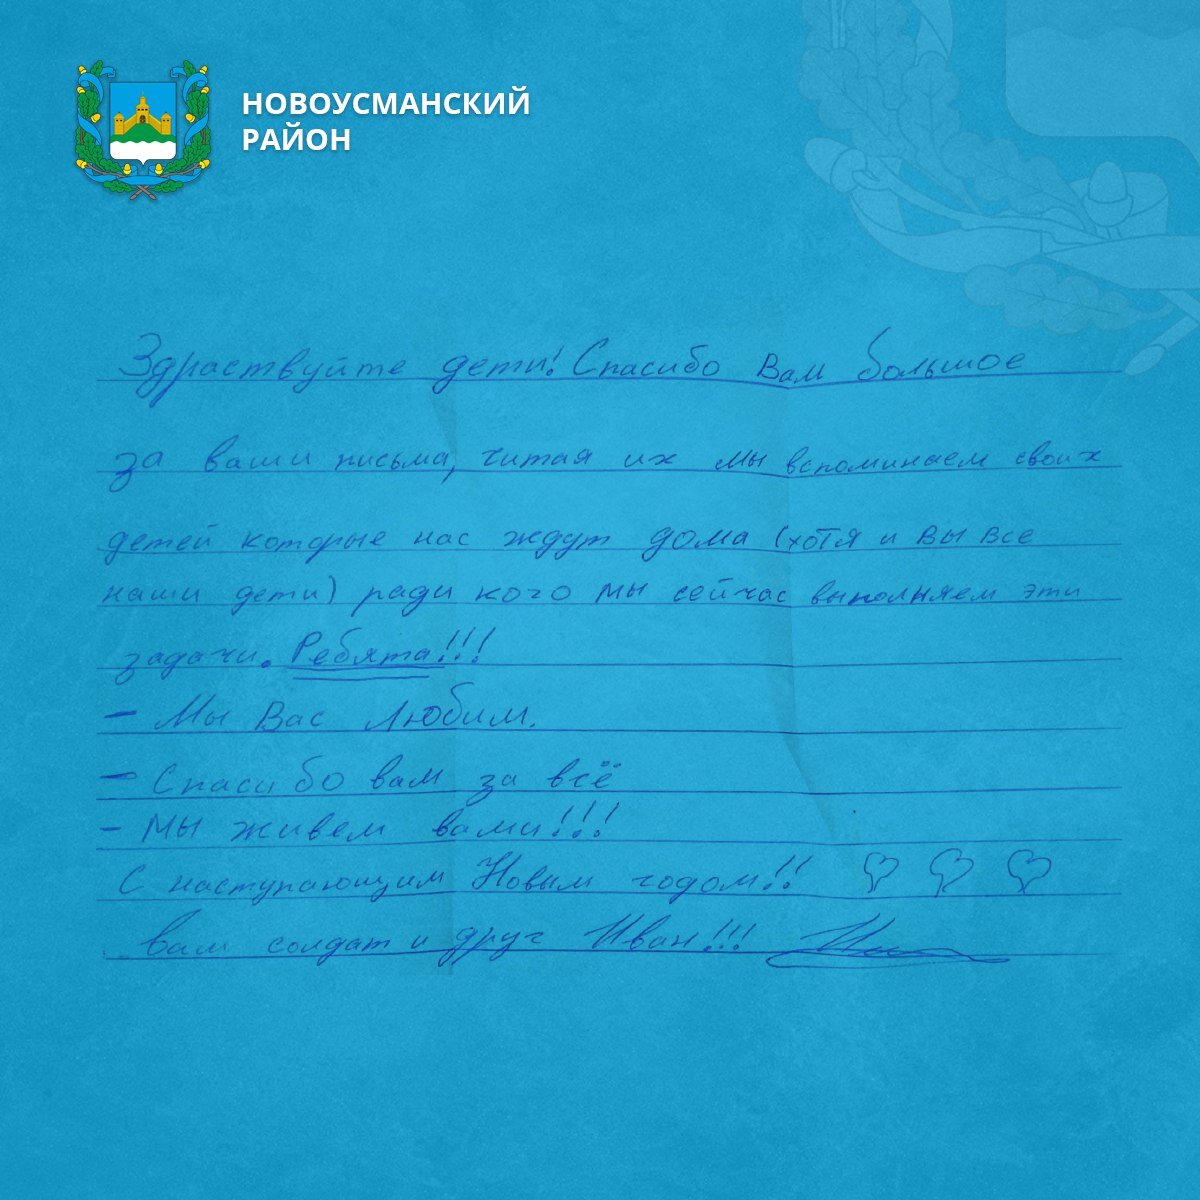 НОВОУСМАНСКИЙ
РАЙОН
Здраствуйте дети! Спасибо Вам большое
за ваши письма, читая их мы вспоминаем своих
детей которые нас ждут дома (хотя и вы все
наши дети) ради кого мы сейчас выполняем эти
задачи. Ребята!!!
- Мы Вас Любим.
- Спасибо вам за всё
- мы живем вами!!!
С наступающим Новым годом!!
вам солдат и друг Иван!!!